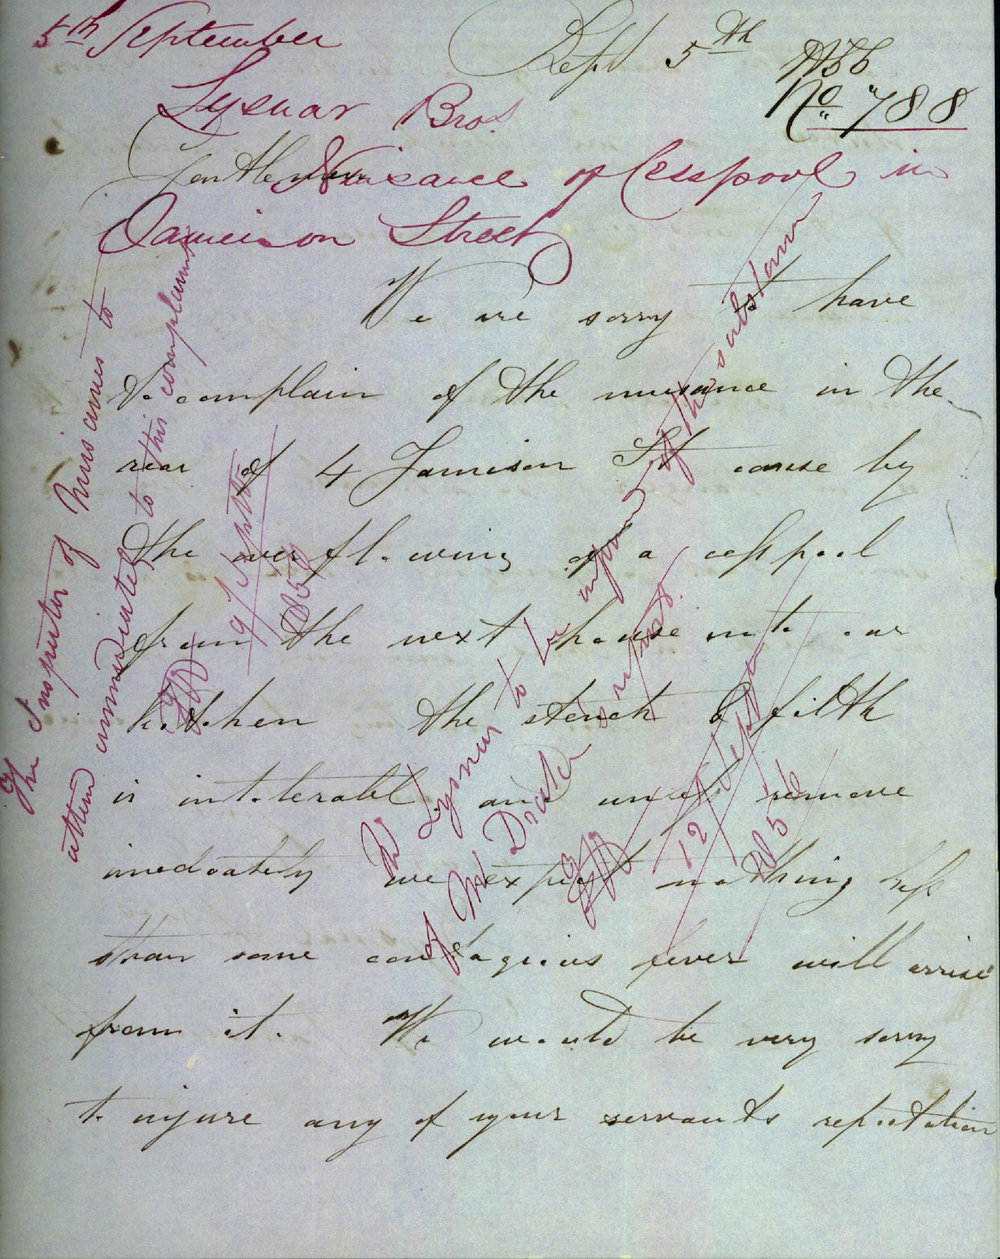 5th September
Sept 5th 1856
No 788
Lysnar Bros
Gentlemen
Nuisance of Cesspool in
Jameison Street
We are sorry to have
to complain of the nuisance in the
rear of 4 Jamison St cause by
the overflowing of a cesspool
from the next house into our
kitchen the stench & filth
is intolerabl and unless remove
imediately we expect nothing less
than some contagious fever will arrise
from it. We would be very sorry
to injure any of your servants reputation
The Inspector of Nuisances to
attend immediately to this complaint
9/Septr
1856
Mr Lysnar to be informed of the substance
of Mr Drake's report.
12 Sept
1856